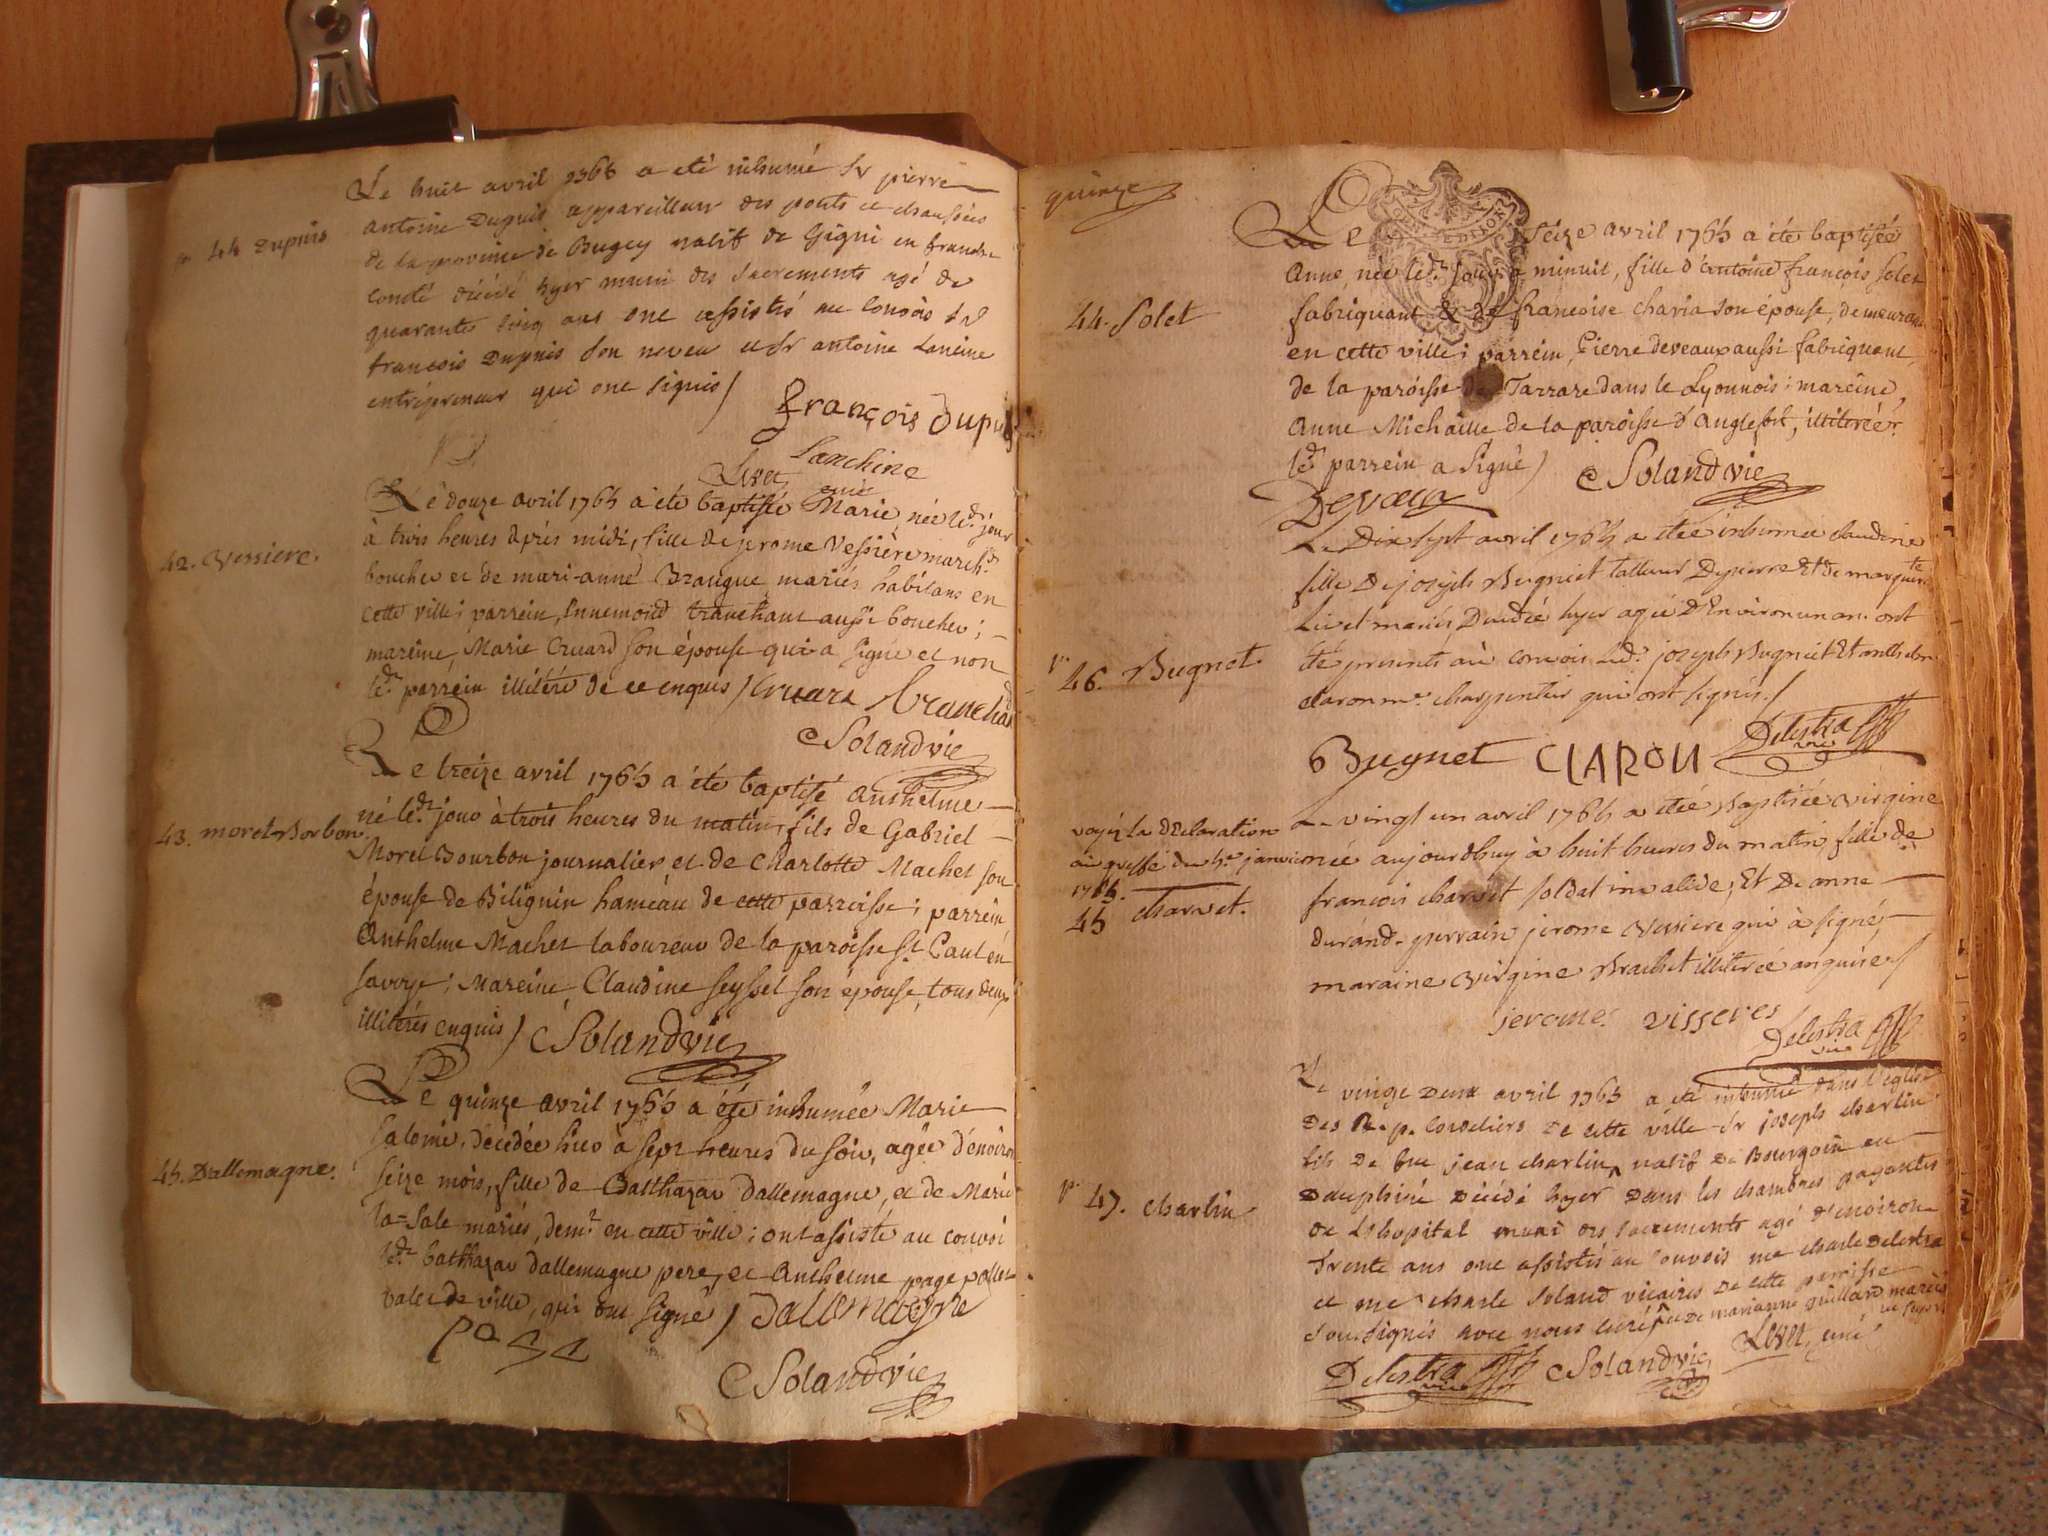 44 Dupuis
Le huit avril 1765 a eté inhumé Sr pierre
antoine Dupuis appareilleur des ponts et chaussées
de la province de Bugey natif de Gigni en franche
comté décédé hyer muni des sacrements agé de
quarante cinq ans ont assistés au convois Sr
françois Dupuis son neveu et Sr antoine Lancine
entrepreneur qui ont signés /
françois Dupuis
Lanchine
Livet curé
42. Vessiere.
Le douze avril 1765 a été baptisée Marie, née led. jour
à trois heures après midi, fille de jerome Vessière march.d
boucher et de mari-anne Brangue mariés habitans en
cette ville; parrein, Innemond tranchant aussi boucher;
mareine, Marie Cruard son épouse qui a signé et non
led. parrein illitéré de ce enquis / Cruara tranchad
Solandvic
43. moret-Borbon
Le treize avril 1765 a été baptisé Anthelme
né led. jour à trois heures du matin, fils de Gabriel
Moret Bourbon journalier et de Charlotte Machet son
épouse de Bilignin haméau de cette parroisse; parrein
Anthelme Machet laboureur de la paroisse St. Paul én
Savoye; Mareine, Claudine Seyssel son épouse, tous deux
illitérés enquis / Solandvic
45. Dallemagne.
Le quinze avril 1765 a été inhumée Marie
Salomé, décédée hier à sept heures du soir, agée d'environ
seize mois, fille de Balthazar Dallemagne, et de Marie
la=Sale mariés, demt en cette ville; ont assisté au convoi
led. balthazar dallemagne pere, et Anthelme page
valet de ville, qui ont signé / Dallemagne
page
Solandvic
quinze
44. Solet
Le Séize avril 1765 a été baptisée
Anne, née led. jour à minuit, fille d'antoine françois Solet
fabriquant & de francoise charia son épouse, demeurant
en cette ville; parrein, Pierre deveaux aussi fabriquant
de la paróisse de Tarrare dans le Lyonnois; mareine,
Anne Michaille de la paróisse d'Anglefort, illiterée
led. parrein a Signé / Solandvic
Devaux
pr 46. Bugnet
Le Dix sept avril 1765 a étée inhumée claudine
fille De joseph Bugniet tailleur De pierre Et de marguerite
Livet mariés Decedée hyer agée D'Environ un an. ont
été presents au convois led. joseph Bugniet Et anthelme
claron me. charpentier qui ont signés. /
Bugnet CLARON Delestra vic
voyéz La Déclaration
au greffe du janvier
1765.
45 charvet.
Le vingt un avril 1765 a etée Baptisée virgine
née aujourdhuy à huit heures du matin fille de
francois charvet soldat invalide; Et De anne
durand. parrain jerome Vessiere qui à signé,
maraine virgine Brachet illiterée enquise /
jerome visseres
Delestra vic
pr 47. charlin
Le vingt Deux avril 1765 a eté inhumé dans l'eglise
Des R. p. cordeliers de cette ville Sr joseph charlin
fils De feu jean charlin, natif De Bourgoin en
Dauphiné Décédé hyer Dans les chambres payantes
de L'hopital muni des sacrements agé d'environ
trente ans ont assistés au convois me charle Delestra
et me charle Soland vicaires De cette parroisse
soussignés avec nous curé et De marianne guillard mariés
Delestra vic Solandvic Livet, curé